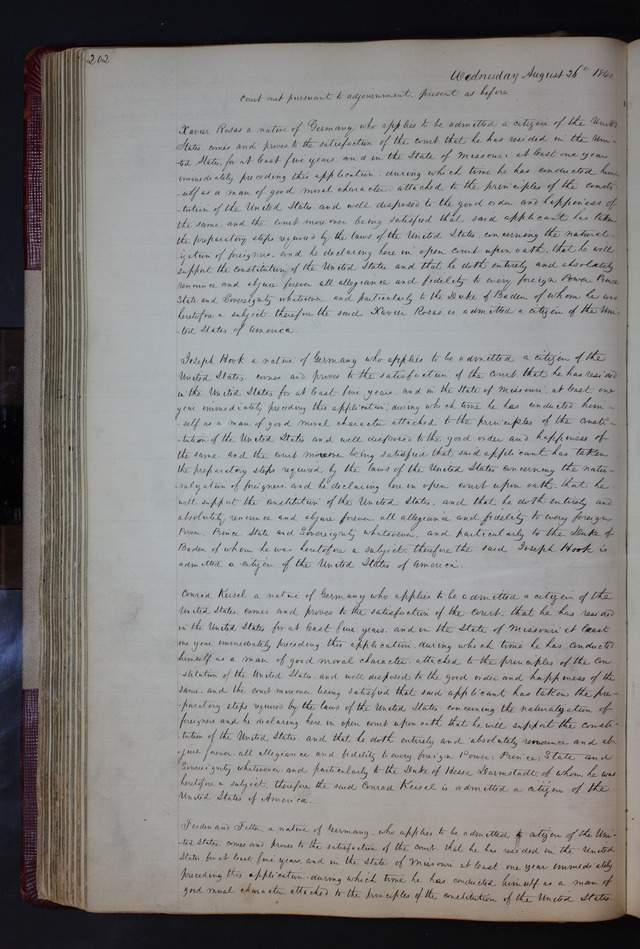 202
Wednesday August 26th 1840
Court met pursuant to adjournment present as before
Xavier Rosas a native of Germany who applies to be admitted a citizen of the United
States comes and proves to the satisfaction of the court that he has resided in the Uni-
-ted States, for at least five years and in the State of Missouri at least one year
immediately preceding this application during which time he has conducted him
-self as a man of good moral character attached to the principles of the consti-
-tution of the United States and well disposed to the good order and happiness of
the same and the court moreover being satisfied that said applicant has taken
the preparatory steps required by the laws of the United States concerning the natural-
-ization of foreigners, and he declaring here in open court upon oath, that he will
support the constitution of the United States, and that he doth entirely and absolutely
renounce and abjure forever all allegiance and fidelity to every foreign Power Prince
State and Sovereignty whatsoever and particularly to the Duke of Baden of whom he was
heretofore a subject. therefore the said Xavier Rosas is admitted a citizen of the Uni-
-ted States of America.
Joseph Hook a native of Germany who applies to be admitted a citizen of the
United States, comes and proves to the satisfaction of the court that he has resided
in the United States for at least five years, and in the State of Missouri, at least one
year immediately preceding this application, during which time he has conducted him-
-self as a man of good moral character attached to the principles of the consti-
-tution of the United States and well disposed to the good order and happiness of
the same. and the court moreover being satisfied that said applicant has taken
the preparatory steps required by the laws of the United States concerning the natu-
ralization of foreigners and he declaring here in open court upon oath, that he
will support the constitution of the United States, and that he doth entirely and
absolutely renounce and abjure forever all allegiance and fidelity to every foreign
Power, Prince, State and Sovereignty whatsoever, and particularly to the Duke of
Baden of whom he was heretofore a subject therefore the said Joseph Hook is
admitted a citizen of the United States of America.
Conrad Keisel a native of Germany who applies to be admitted a citizen of the
United States, comes and proves to the satisfaction of the Court, that he has resided
in the United States for at least five years, and in the State of Missouri at least
one year immediately preceding this application, during which time he has conducted
himself as a man of good moral character, attached to the principles of the con
stitution of the United States, and well disposed to the good order and happiness of the
same, and the court moreover being satisfied that said applicant has taken the pre-
-paratory steps required by the laws of the United States concerning the naturalization of
foreigners and he declaring here in open court upon oath that he will support the consti-
-tution of the United States. and that he doth entirely and absolutely renounce and ab-
-jure forever all allegiance and fidelity to every foreign Power, Prince, State and
Sovereignty whatsoever and particularly to the Duke of Hesse Darmstadt of whom he was
heretofore a subject, therefore the said Conrad Keisel is admitted a citizen of the
United States of America.
Ferdinand a native of Germany who applies to be admitted a citizen of the Uni-
-ted States, comes and proves to the satisfaction of the court, that he has resided in the United
States for at least five years, and in the State of Missouri at least one year immediately
preceding this application during which time he has conducted himself as a man of
good moral character attached to the principles of the constitution of the United States.